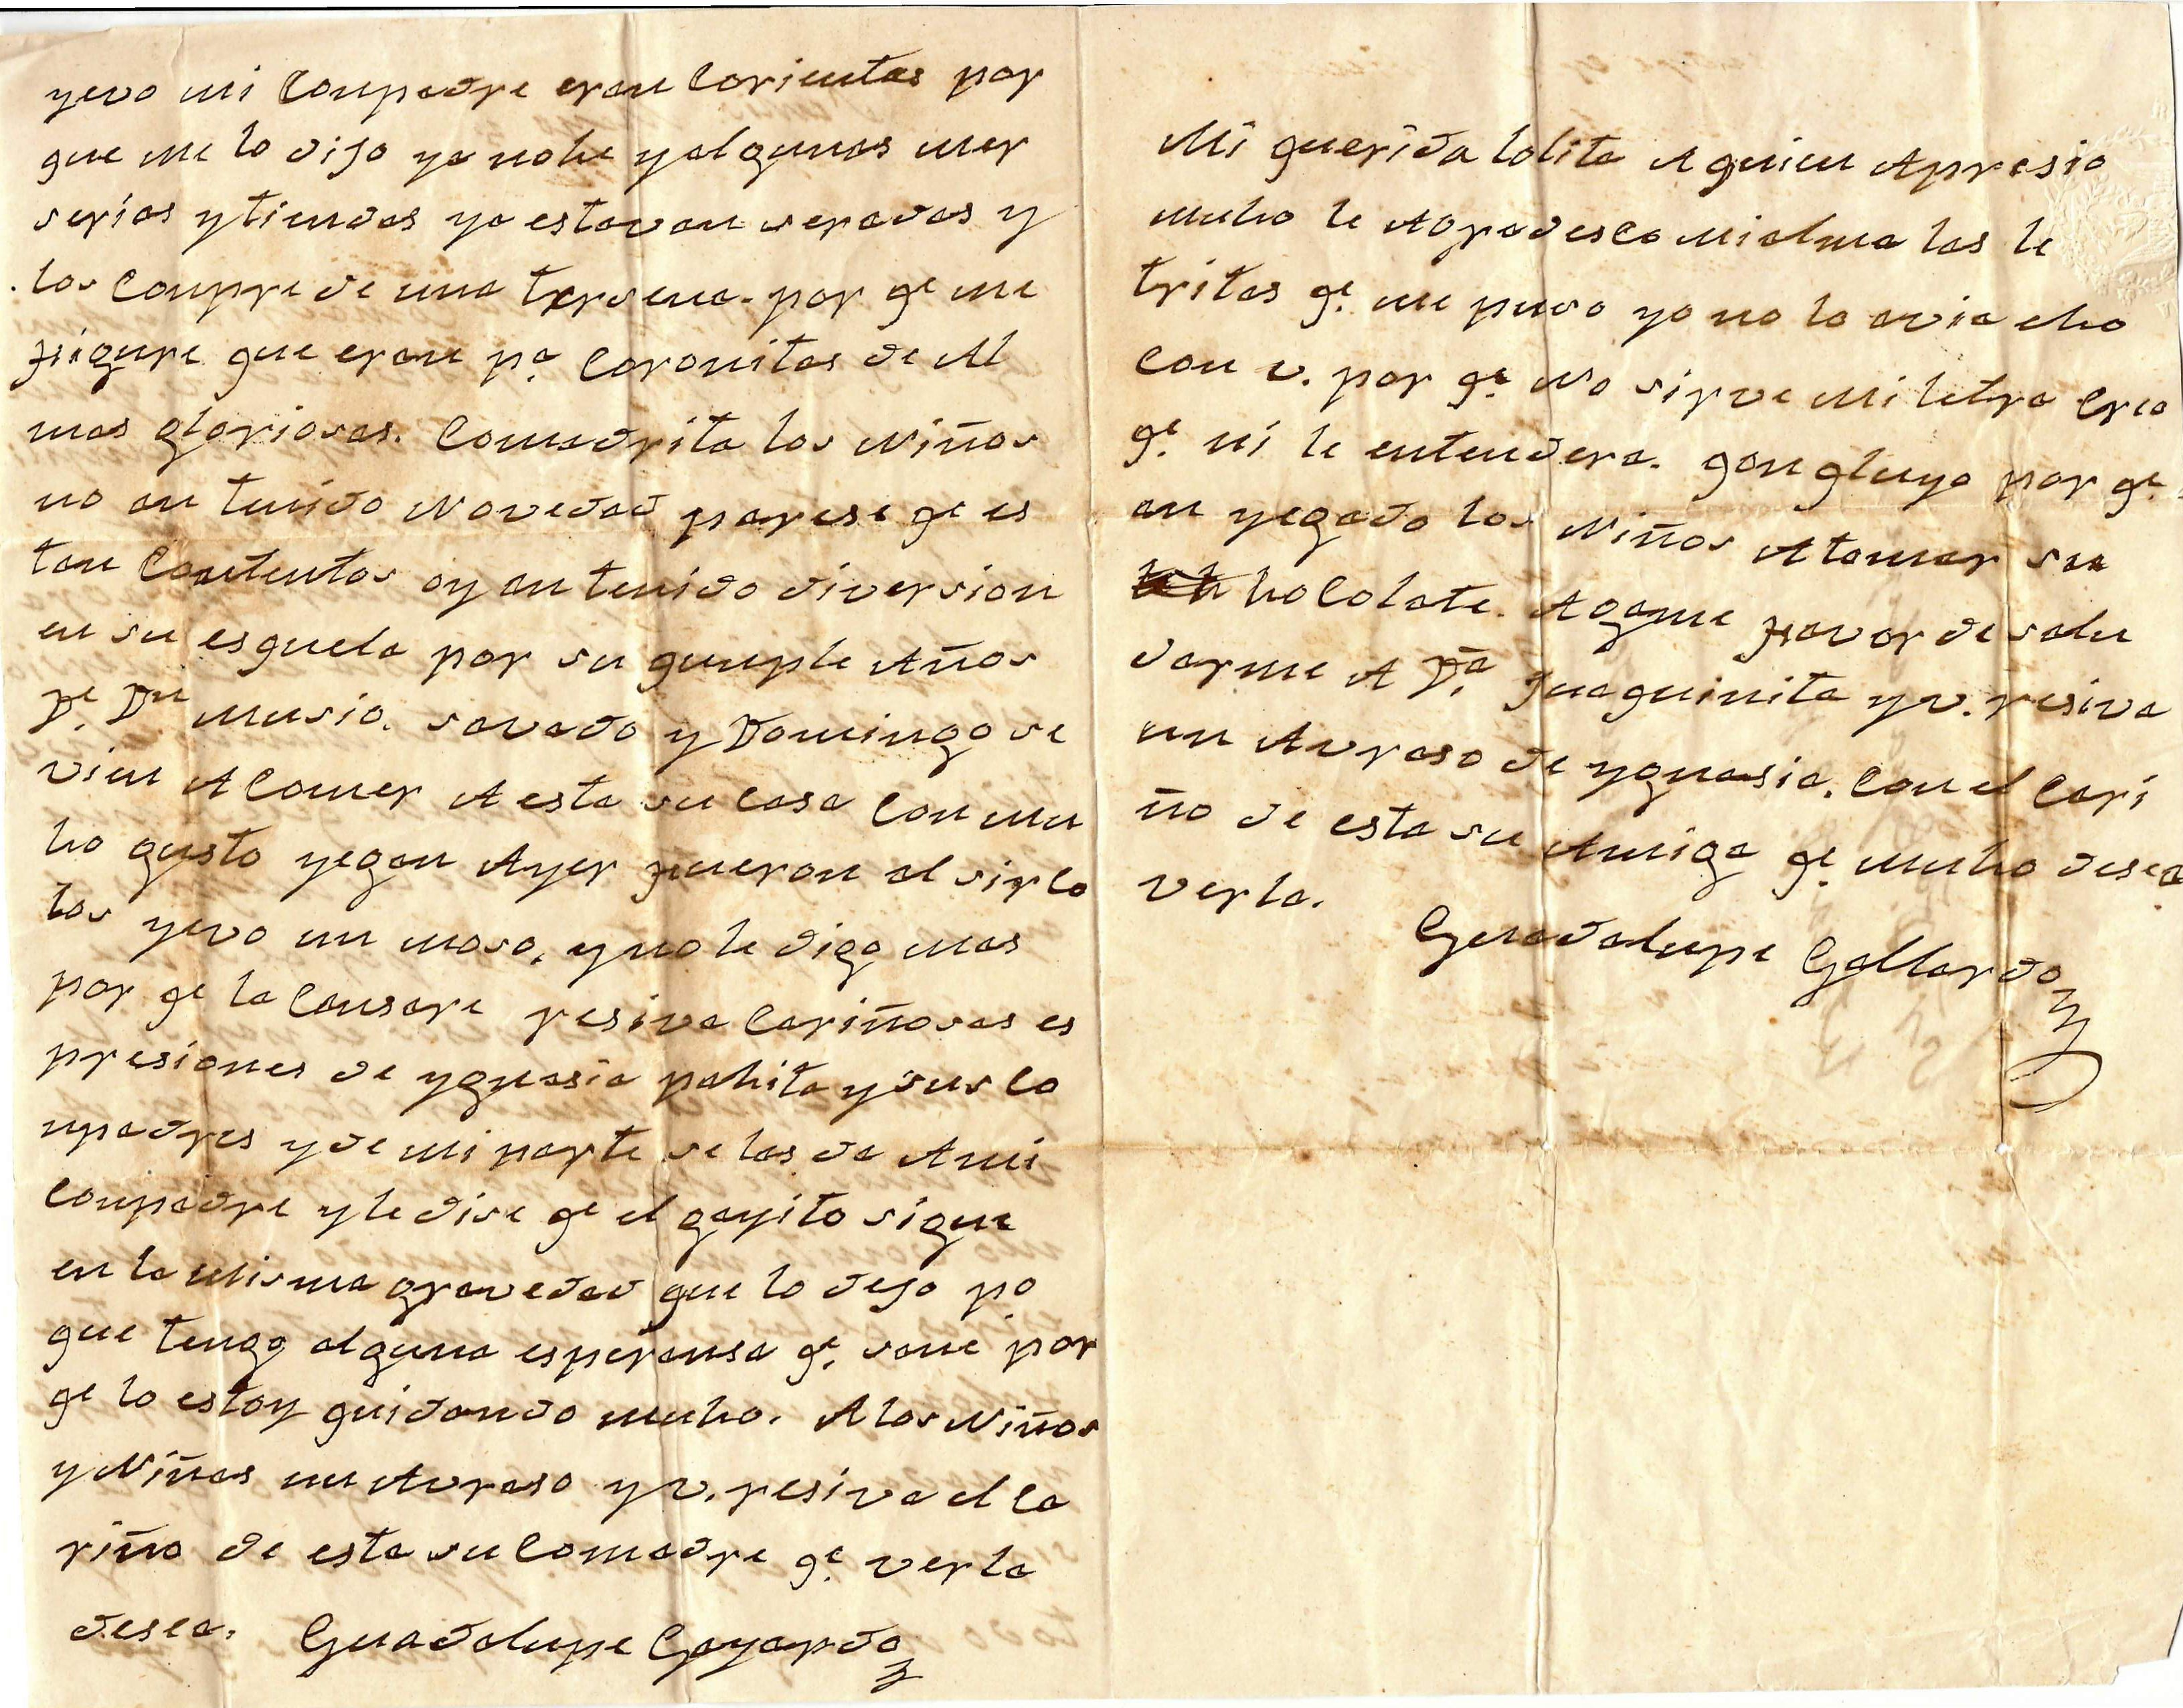 yevo mi Compadre eran Corientes por
que me lo dijo ya nohe y algunas mer
serias y tiendas ya estavan seradas y
los Compre de una tersena. por qe me
figure que eran pa. Coronitas de Al
mas gloriosas. Comadrita los Niños
no an tenido Novedad parese qe es
tan Contentos oy an tenido diversion
en su esquela por su qumple Años
de. Dn Musio. savado y Domingo se
vien A Comer A esta su Casa Con mu
ho gusto yegan Ayer fueron al sirco
los yevo un moso, y no le digo mas
por qe la Cansare resiva Cariñosas es
presiones de ygnasia pahita y sus Co
npadres y de mi parte se las da Ami
Conpadre y le dise qe el gayito sigue
en la Misma gravedad que lo dejo po
que tengo alguna esperansa qe. sane por
qe lo estoy quidando muho. A los Niños
y Niñas un Avraso y v. resiva el Ca
riño de esta su Comadre qe. verla
desea. Guadalupe Gayardo
Mi querida lolita A quien Apresio
muho le Agradesco Mi alma las le
tritas qe. me puso yo no lo avia eho
Con v. por qe. No sirve Mi letra Creo
qe. ni le entendera. qonqluyo por qe.
an yegado los Niños A tomar su
holCo­late. Agame favor de salu
darme A Da. juaquinita y v. resiva
un Avraso de ygnasia. Con el Cari
ño de esta su Amiga qe. muho desea
verla.
Guadalupe Gallardo